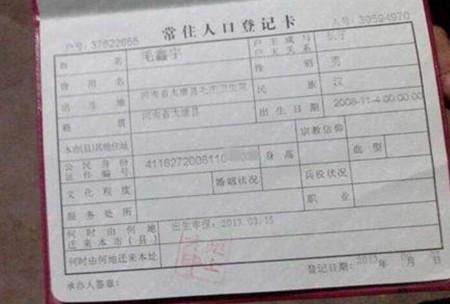 常住人口登记卡
户号: 37622655 人号: 39594970
姓名 毛鑫宇 户主或与户主关系 长子
曾用名 性别 男
出生地 河南省太康县毛庄卫生院 民族 汉
籍贯 河南省太康县 出生日期 2008-11-4 00:00:00
本市(县)其他住址 宗教信仰
公民身份证件编号 4116272008110 身高 血型
文化程度 婚姻状况 兵役状况
服务处所 职业
何时由何地迁来本市(县) 出生申报: 2013.03.15
何时由何地迁来本址
承办人签章: 登记日期: 2013